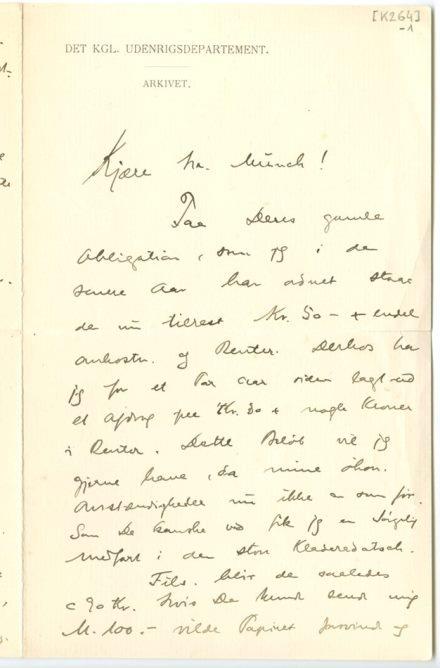 [K264]
-1
DET KGL. UDENRIGSDEPARTEMENT.
ARKIVET.
Kjære hr. Munch!
Paa Deres gamle
Obligation, som jeg i de
senere Aar har ordnet staar
de nu tilrest Kr. 50 – + endel
omkostn. og Renter. Derhos har
jeg for et Par aar siden lagt ud
et afdrag paa Kr. 30 + nogle Kroner
i Renter. Dette Beløb vil jeg
gjerne have, da mine økon.
Omstændigheder nu ikke er som før.
Som De kanske ved fik jeg en sørgelig
medfart i den store Kladeredatsch.
Tils. blir de saaledes
c 90 Kr. Hvis De kunde sende mig
M. 100.- vilde Papiret forsvinde og